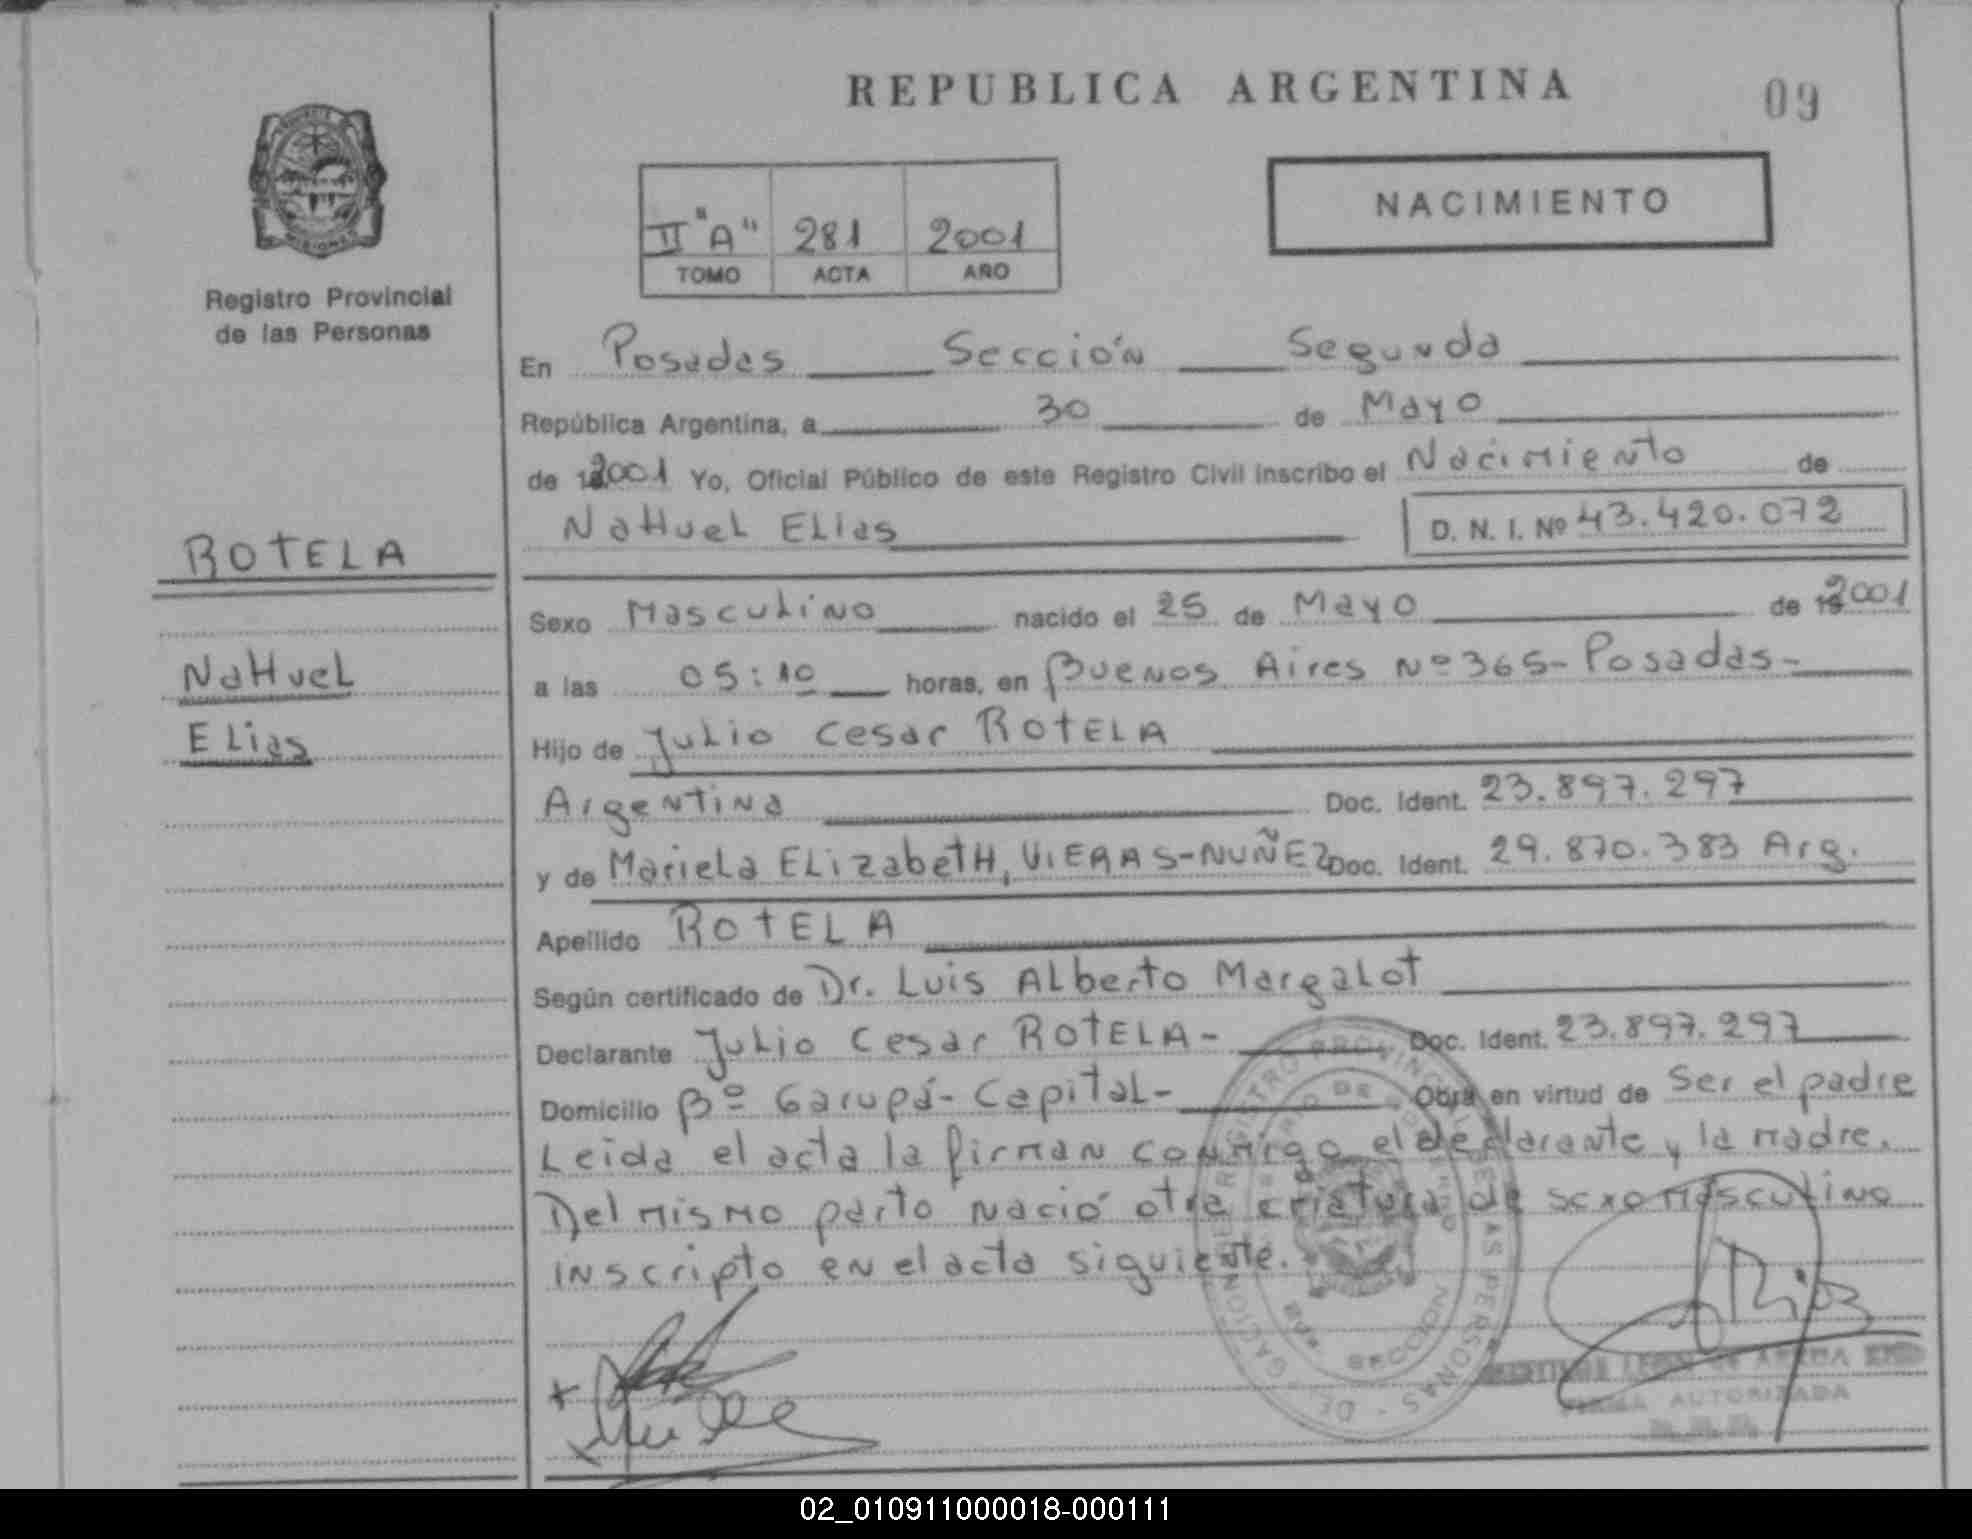 REPUBLICA ARGENTINA
09
NACIMIENTO
II "A" 281 2001
TOMO ACTA AÑO
Registro Provincial
de las Personas
En Posadas Sección Segunda
República Argentina, a 30 de Mayo
de 2001 Yo, Oficial Público de este Registro Civil inscribo el Nacimiento de
Nahuel Elias D. N. I. Nº 43.420.072
ROTELA
Nahuel
Elias
Sexo Masculino nacido el 25 de Mayo de 2001
a las 05:10 horas, en Buenos Aires Nº 365- Posadas-
Hijo de Julio Cesar ROTELA
Argentina Doc. Ident. 23.897.297
y de Mariela Elizabeth, VIERAS-NUÑEZ Doc. Ident. 29.870.383 Arg.
Apellido ROTELA
Según certificado de Dr. Luis Alberto Margalot
Declarante Julio Cesar ROTELA- Doc. Ident. 23.897.297
Domicilio Bº Garupá- Capital- Obra en virtud de Ser el padre
Leida el acta la firman conmigo el declarante y la madre.
Del mismo parto nació otra criatura de sexo masculino
inscripto en el acta siguiente.
REGISTRO PROVINCIAL DE LAS PERSONAS
FIRMA AUTORIZADA
02_010911000018-000111